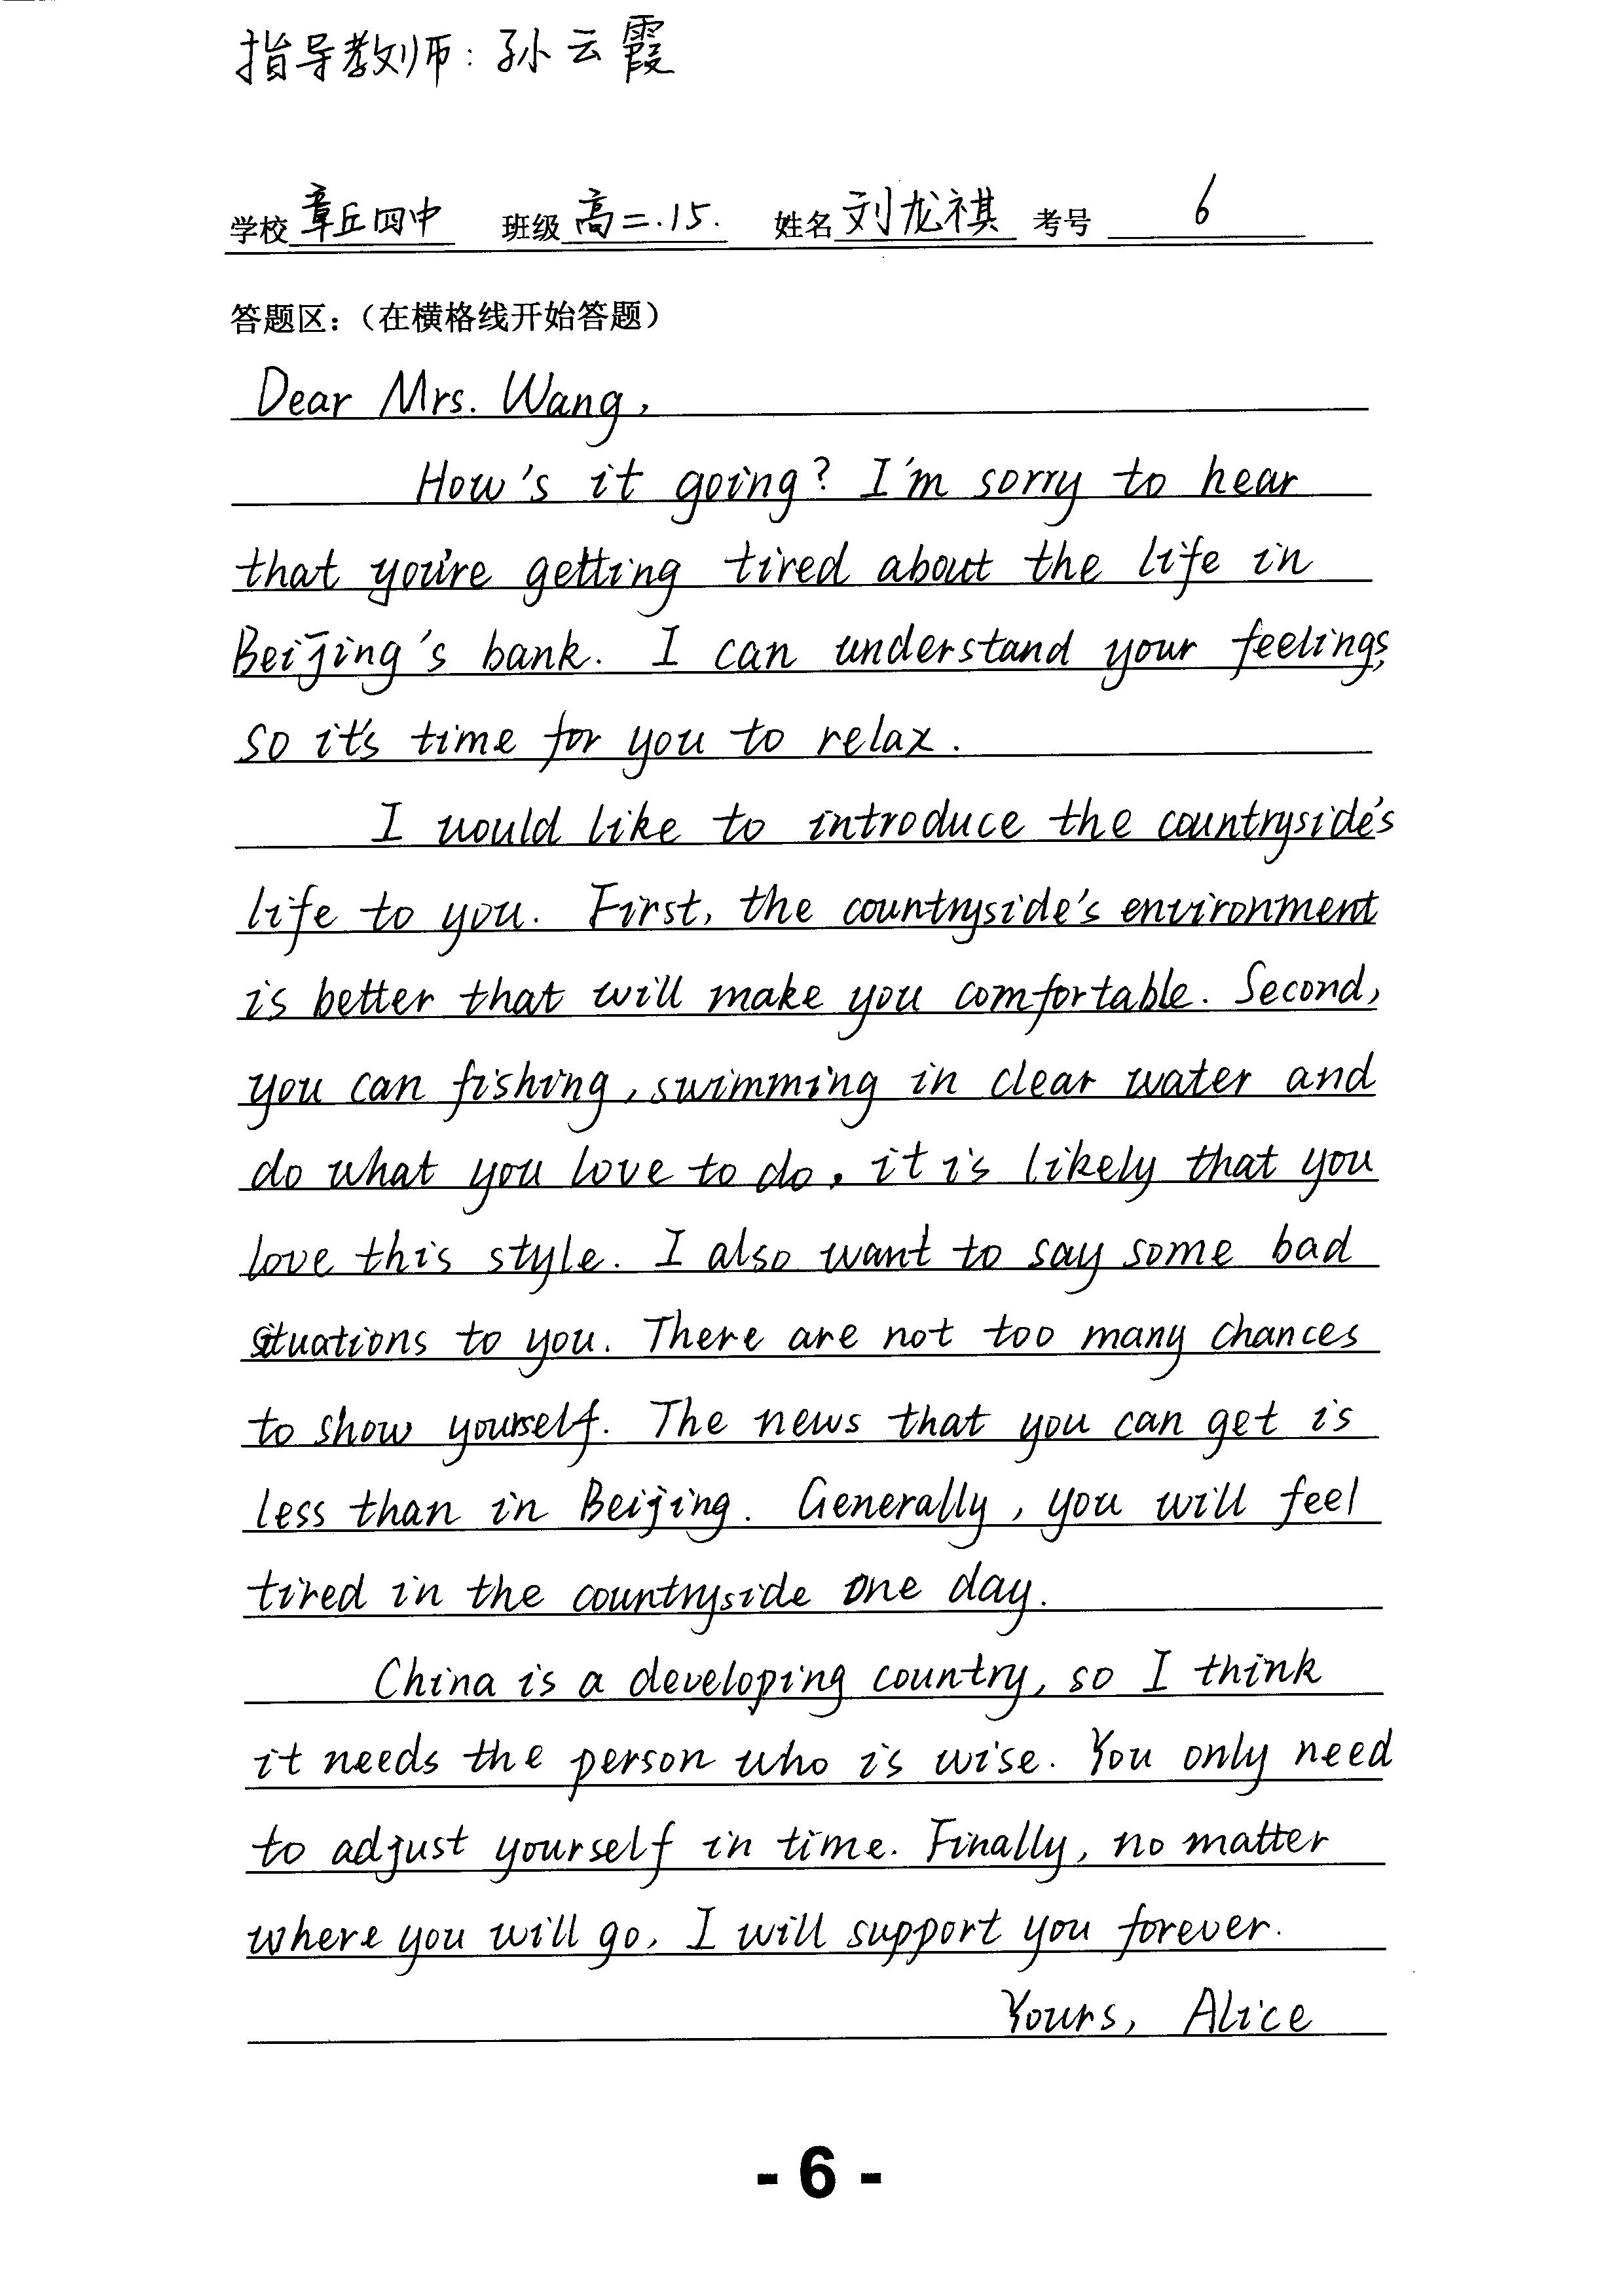 指导教师：孙云霞
学校 章丘四中 班级 高二.15. 姓名 刘龙祺 考号 6
答题区：（在横格线开始答题）
Dear Mrs. Wang,
How's it going? I'm sorry to hear
that you're getting tired about the life in
Beijing's bank. I can understand your feelings,
so it's time for you to relax.
I would like to introduce the countryside's
life to you. First, the countryside's environment
is better that will make you comfortable. Second,
you can fishing, swimming in clear water and
do what you love to do. it is likely that you
love this style. I also want to say some bad
situations to you. There are not too many chances
to show yourself. The news that you can get is
less than in Beijing. Generally, you will feel
tired in the countryside one day.
China is a developing country, so I think
it needs the person who is wise. You only need
to adjust yourself in time. Finally, no matter
where you will go, I will support you forever.
Yours, Alice
- 6 -